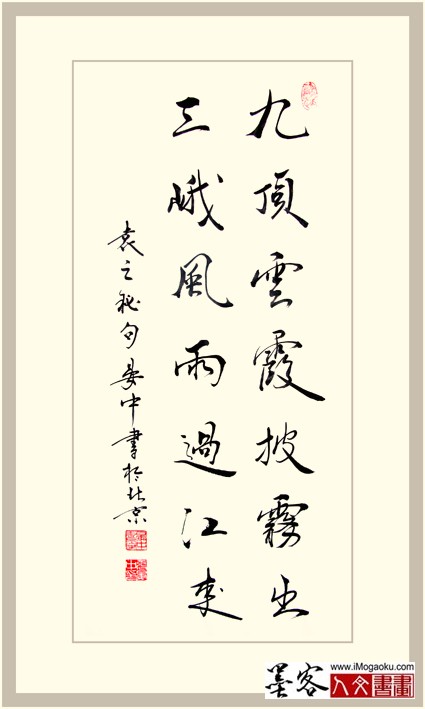 九頂雲霞披霧出
三峨風雨過江來
袁之秘句晏中書於北京
墨客
www.iMogaoku.com
人文書畫